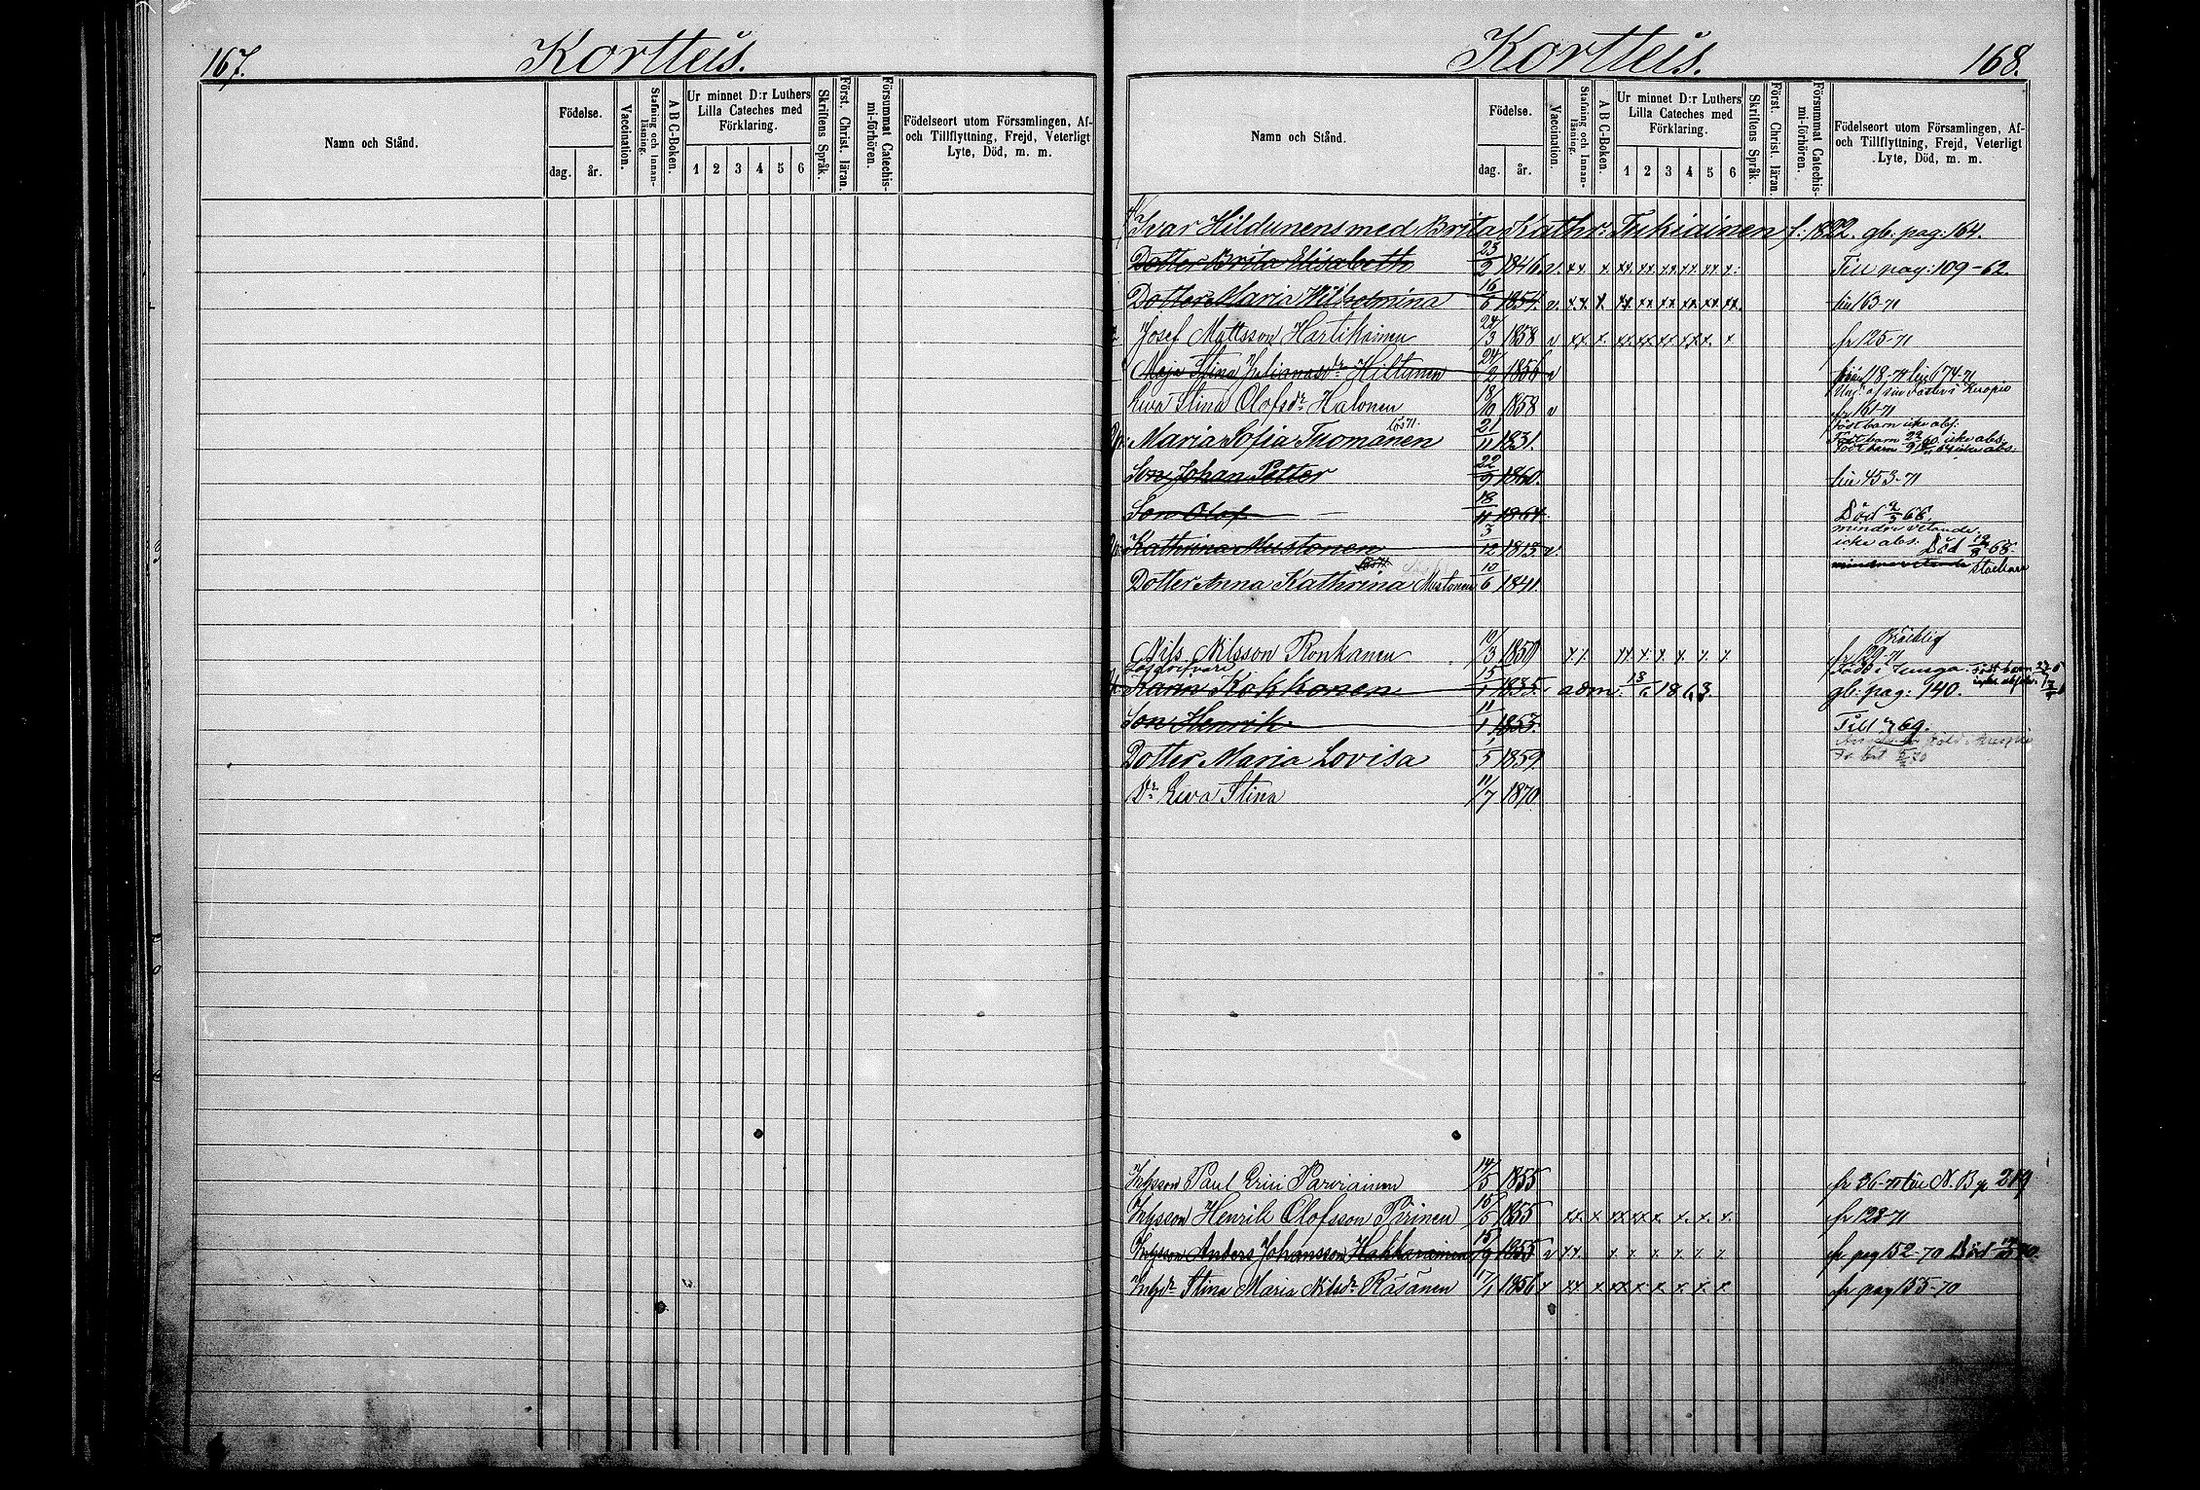 167.
Kortteis.
Namn och Stånd.
Födelse.
dag.
år.
Vaccination.
Stafning och Innanläsning.
A B C-Boken.
Ur minnet D:r Luthers Lilla Cateches med Förklaring.
1 2 3 4 5 6
Skriftens Språk.
Först. Christ. läran.
Försummat Catechismi-förhören.
Födelseort utom Församlingen, Af- och Tillflyttning, Frejd, Veterligt Lyte, Död, m. m.
Kortteis.
168.
Namn och Stånd.
Födelse.
dag.
år.
Vaccination.
Stafning och Innanläsning.
A B C-Boken.
Ur minnet D:r Luthers Lilla Cateches med Förklaring.
1 2 3 4 5 6
Skriftens Språk.
Först. Christ. läran.
Försummat Catechismi-förhören.
Födelseort utom Församlingen, Af- och Tillflyttning, Frejd, Veterligt Lyte, Död, m. m.
Ivar Hildunens med Brita Kathr: Tukiainen f: 1822. gb: pag: 164.
Dotter Brita Elisabeth 23/2 1846 v. Till pag: 109-62.
Dotter Maria Wilhelmina 16/6 1854 v. 163-71
Josef Mattsson Hartikainen 24/3 1858 v fr 125-71
Maja Stina Hiltunen 24/2 1856 v 118-71 674-71
Ewa Stina Olofsdr Halonen 18/10 1858 v fr 161-71
Maria Sofia Tuomanen 21/11 1831. Födt barn icke abs:
Son Johan Petter 22/9 1860. 453-71
Son Olof 18/11 1864. Död 2/3 68.
Kathrina Mustonen 3/12 1813 v. mindre vetande. icke abs: Död 68.
Dotter Anna Kathrina Mustonen 10/6 1841.
Nils Nilsson Ronkanen 10/3 1859 Bräcklig fr 129-71
Karin Kokkonen 15/1 1835. adm. 13/6 1863. gb: pag: 140.
Son Henrik 11/1 1853. Till 69.
Dotter Maria Lovisa 1/5 1859.
Dr Ewa Stina 11/7 1870
Inhysson Paul Eric Parviainen 14/5 1855 fr 36-71 N.B. p 219
Inhysson Henrik Olofsson Pirinen 15/5 1855 fr 128-71
Inhysson Anders Johansson Hakkarainen 15/9 1855 v fr pag 152-70 Död
Inhysdr Stina Maria Nilsdr Räsänen 17/1 1856 fr pag 155-70